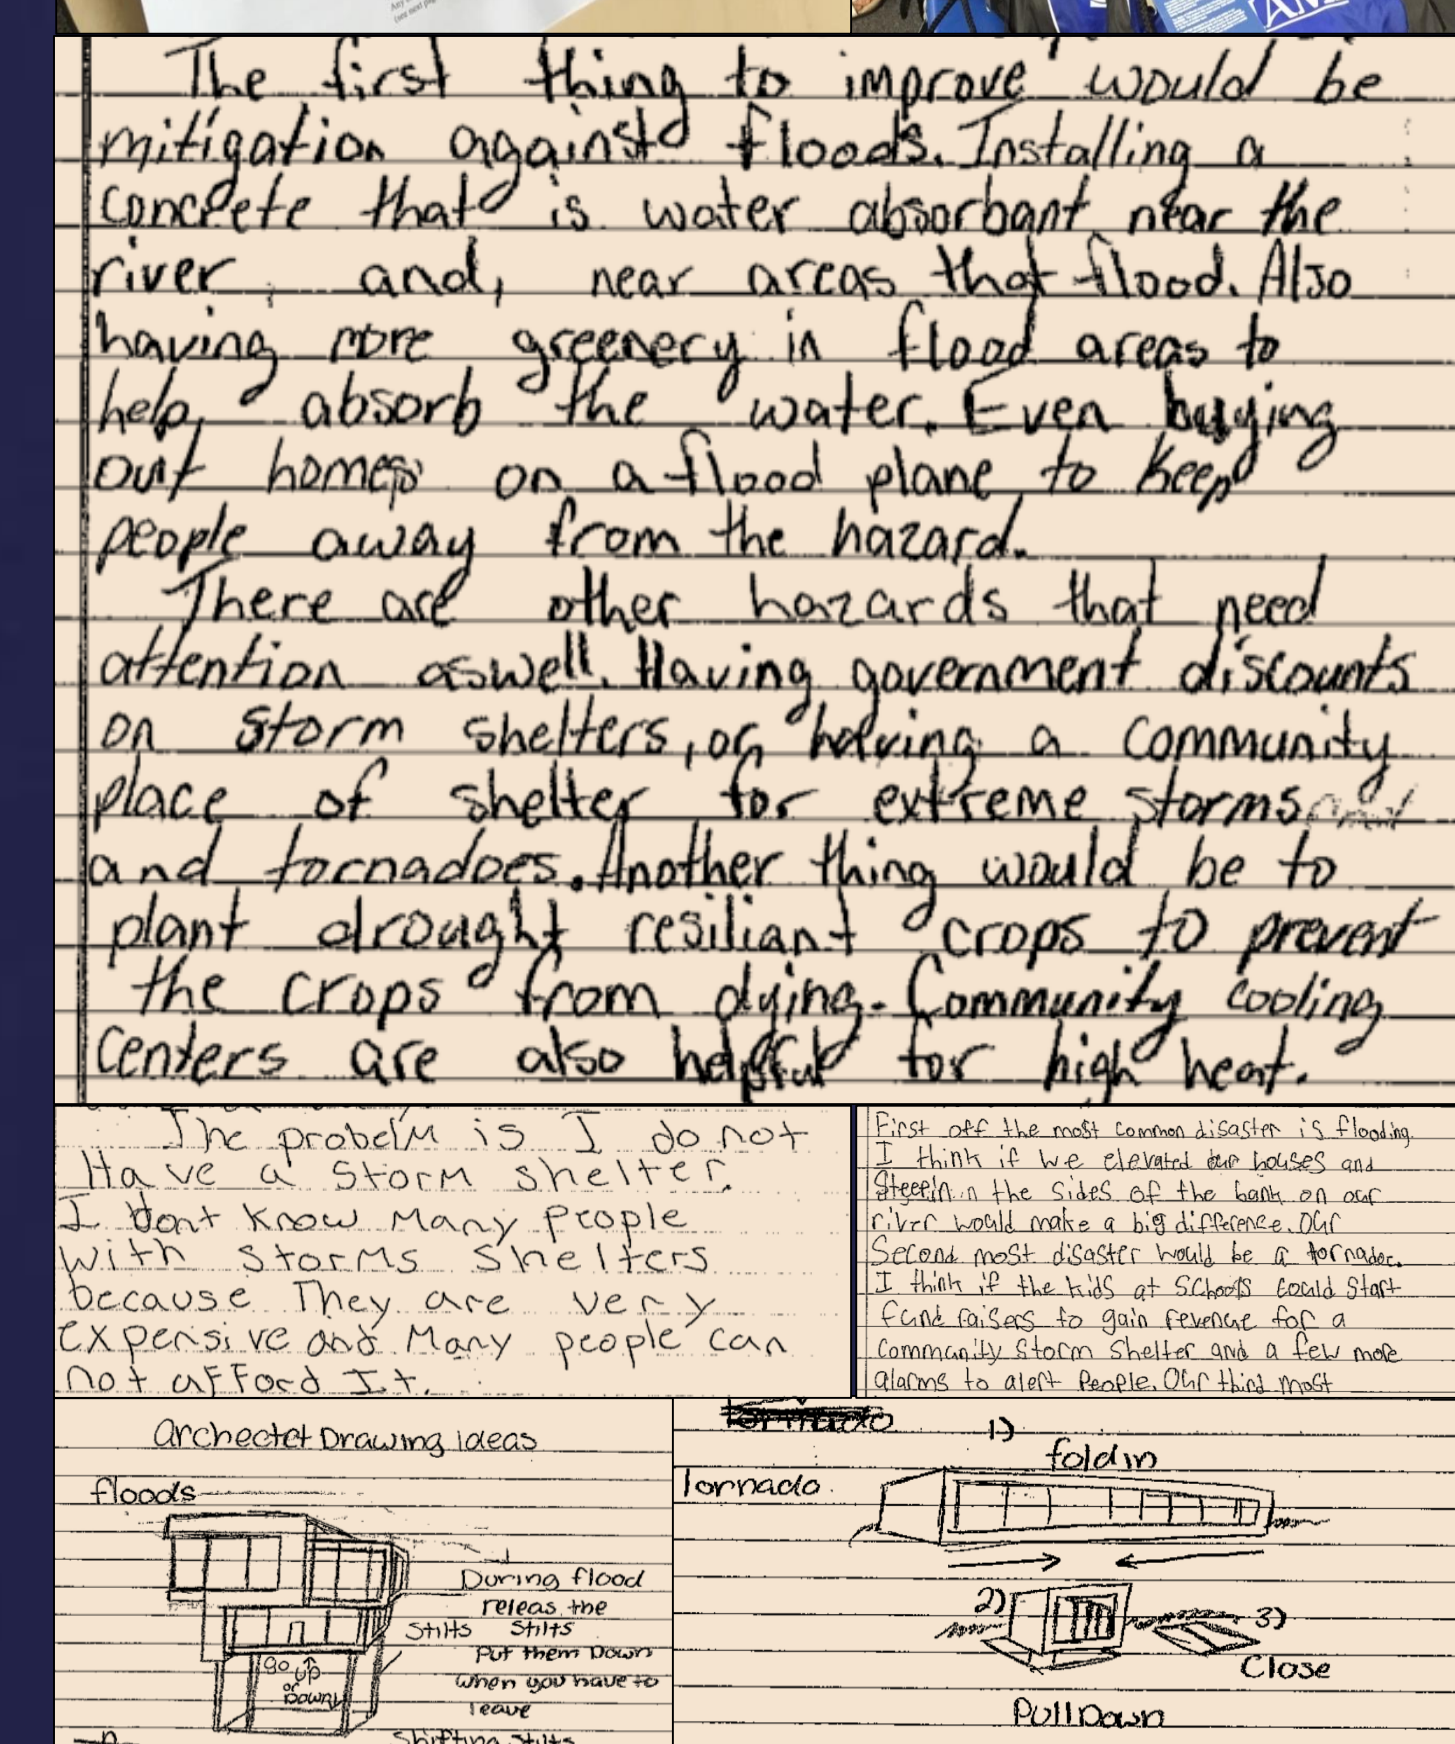 The first thing to improve would be
mitigation against floods. Installing a
concrete that is water absorbant near the
river, and, near areas that flood. Also
having more greenery in flood areas to
help absorb the water. Even buying
out homes on a flood plane to keep
people away from the hazard.
There are other hazards that need
attention aswell. Having government discounts
on storm shelters, or having a community
place of shelter for extreme storms
and tornadoes. Another thing would be to
plant drought resiliant crops to prevent
the crops from dying. Community cooling
centers are also helpful for high heat.
The probelm is I do not
Have a storm shelter.
I dont know many people
with storms shelters
because They are very
expensive and Many people can
not afford It.
First off the most common disaster is flooding.
I think if we elevated our houses and
in the sides of the bank on our
river would make a big difference. Our
Second most disaster would be a tornadoe.
I think if the kids at schools could start
fund raisers to gain revenue for a
community storm shelter and a few more
alarms to alert people. Our third most
Archectet Drawing ideas
floods
During flood
releas the
Stilts Stilts
Put them Down
when you have to
leave
go up
or
Down
Shifting Stilts
Tornado
1)
fold in
Tornado
2)
3)
Close
Pull Down